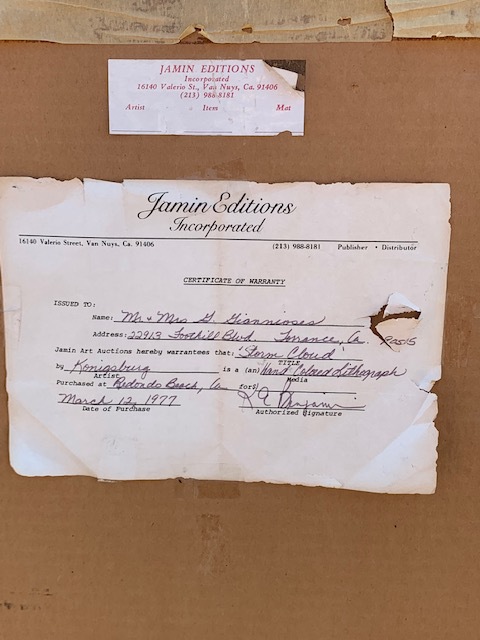 JAMIN EDITIONS
Incorporated
16140 Valerio St., Van Nuys, Ca. 91406
(213) 988-8181
Artist Item Mat
Jamin Editions
Incorporated
16140 Valerio Street, Van Nuys, Ca. 91406 (213) 988-8181 Publisher • Distributor
CERTIFICATE OF WARRANTY
ISSUED TO:
Name: Mr. & Mrs G. Giannioses
Address: 22913 Foothill Blvd, Torrance, Ca. 90515
Jamin Art Auctions hereby warrantees that: "Storm Cloud"
TITLE
by Konigsburg is a (an) Hand Colored Lithograph
Artist Media
Purchased at Redondo Beach, Ca for$
March 12, 1977
Date of Purchase Authorized Signature